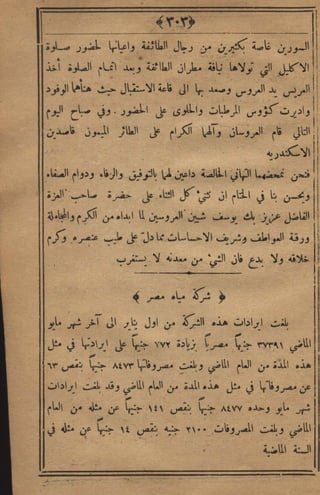 ﴿٣٠٣﴾
السورين غاصة بكثيرين من رجال الطائفة واعيانها لحضور صلوة
الاكليل التي تولاها نيافة مطران الطائفة وبعد اتمام الصلوة أخذ
العريس يد العروس وصعد بها الى قاعة الاستقبال حيث هنأهما الوفود
واديرت كؤوس المرطبات والحلوى على الحضور. وفي صباح اليوم
التالي قام العروسان وآلهما الكرام على الطائر الميمون قاصدين
الاسكندريه
فنحن نمحضهما التهاني الخالصة داعين لهما بالتوفيق والرفاء ودوام الصفاء
ويحسن بنا في الختام ان نثني كل الثناء على حضرة صاحب العزة
الفاضل عزيز بك يوسف شبين العروسين لما ابداه من الكرم والمجاملة
ورقة العواطف وشريف الاحساسات مما دل على طيب عنصره وكرم
خلاقه ولا بدع فان الشئ من معدنه لا يستغرب
﴿ شركة مياه مصر ﴾
بلغت ايرادات هذه الشركة من اول يناير الى آخر شهر مايو
الماضي ٣٧٣٩١ جنيهاً مصرياً بزيادة ٧٧٢ جنيهاً على ايرادتها في مثل
هذه المدة من العام الماضي وبلغت مصروفاتها ٨٤٧٣ جنيهاً بنقص ٦٣
عن مصروفاتها في مثل هذه المدة من العام الماضي وقد بلغت ايرادات
شهر مايو وحده ٨٤٧٧ جنيهاً بنقص ١٤١ جنيهاً عن مثله من العام
الماضي وبلغت المصروفات ٢١٠٠ جنيه بنقص ١٤ جنيهاً عن مثله في
السنة الماضية